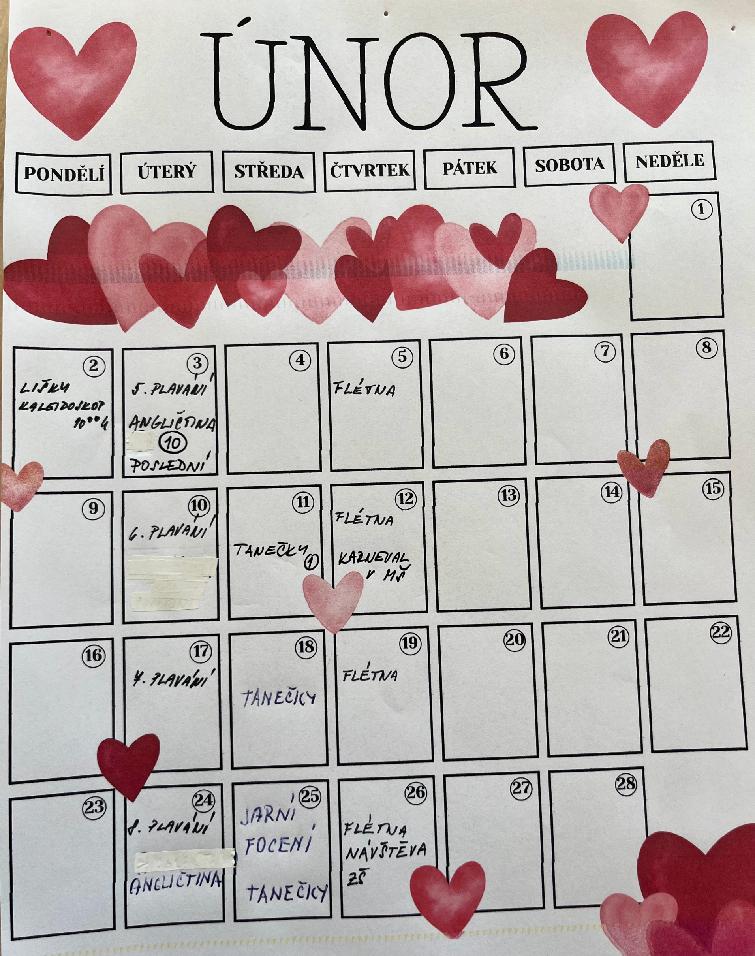 ÚNOR
PONDĚLÍ ÚTERÝ STŘEDA ČTVRTEK PÁTEK SOBOTA NEDĚLE
1
2 3 4 5 6 7 8
LIŠKY
KALEIDOSKOP
10⁰⁰ h
5. PLAVÁNÍ
ANGLIČTINA
10
POSLEDNÍ
FLÉTNA
9 10 11 12 13 14 15
6. PLAVÁNÍ
TANEČKY
1
FLÉTNA
KARNEVAL
V MŠ
16 17 18 19 20 21 22
7. PLAVÁNÍ
TANEČKY
FLÉTNA
23 24 25 26 27 28
8. PLAVÁNÍ
ANGLIČTINA
JARNÍ
FOCENÍ
TANEČKY
FLÉTNA
NÁVŠTĚVA
ZŠ